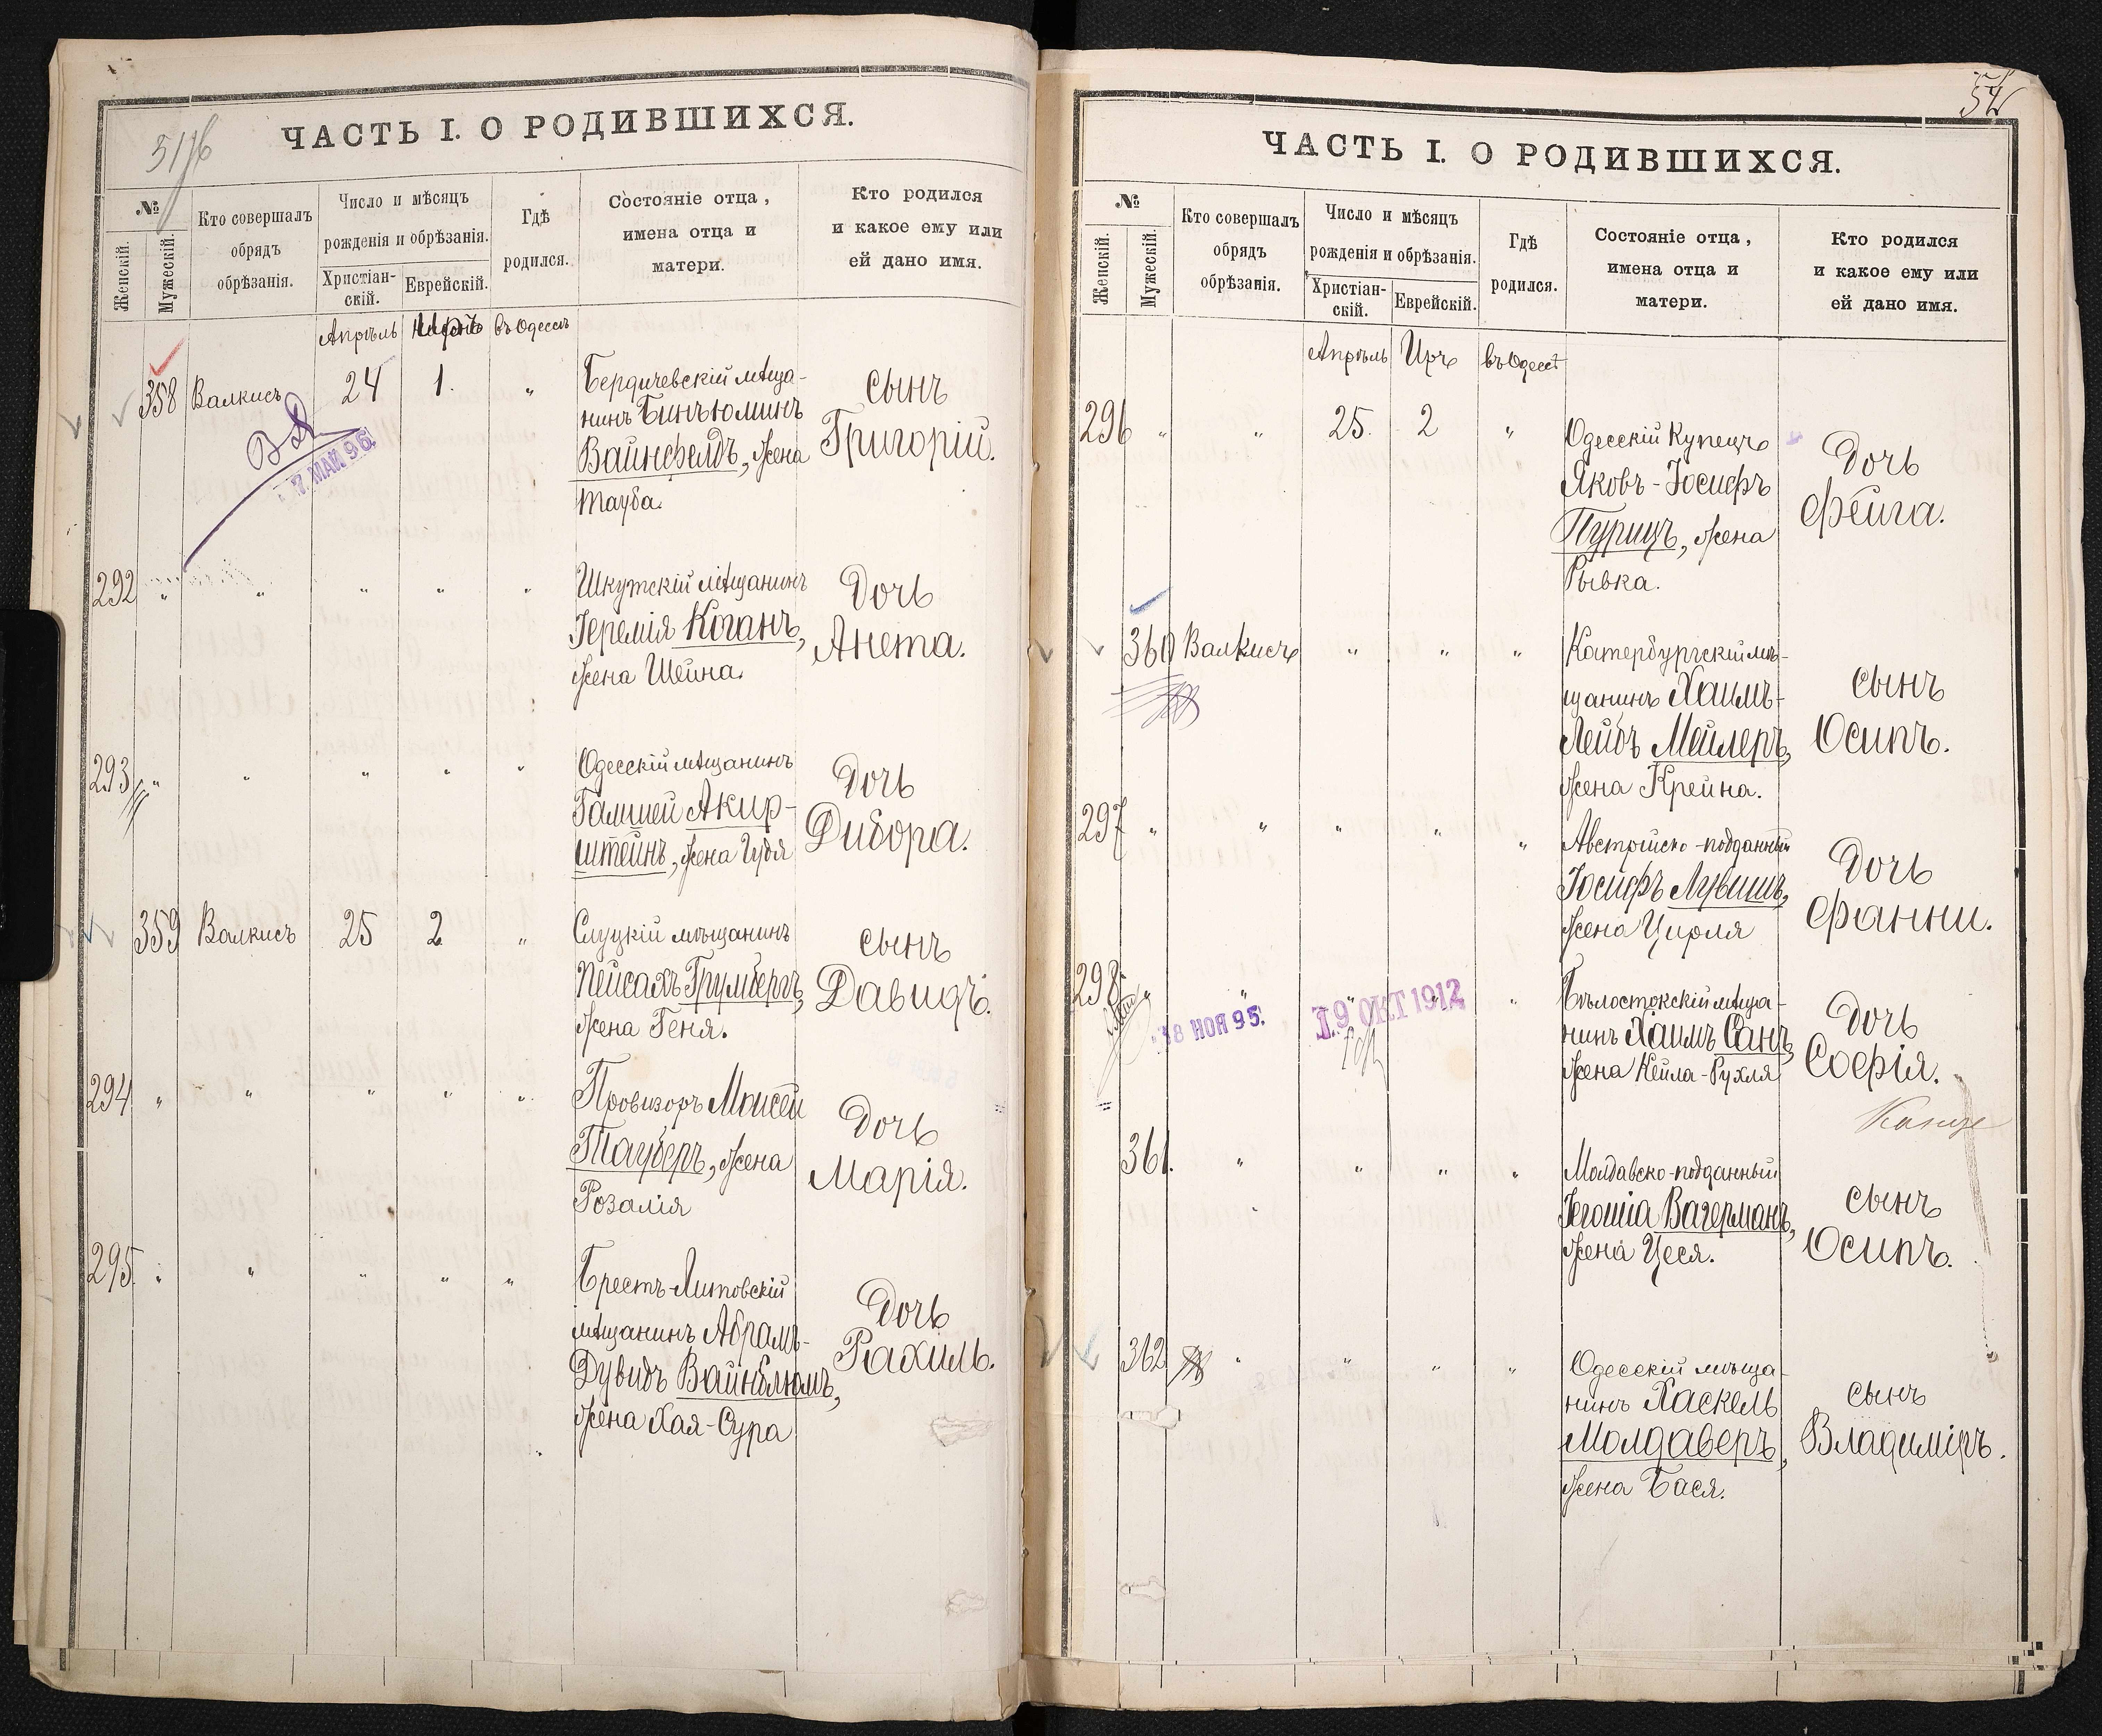 ЧАСТЬ I. О РОДИВШИХСЯ.
№
Женскій.
Мужескій.
Кто совершалъ
обрядъ
обрѣзанія.
Число и мѣсяцъ
рожденія и обрѣзанія.
Христіан-
скій.
Еврейскій.
Гдѣ
родился.
Состояніе отца,
имена отца и
матери.
Кто родился
и какое ему или
ей дано имя.
Апрѣль въ Одессѣ
358 Валкисъ 24 1. " Бердичевскій мѣща-
нинъ Биньюминъ
Вайнфелдъ, жена
Тауба.
сынъ
Григорій.
7. МАЙ 96.
292 " " " " " Шкутскій мѣщанинъ
Іеремія Коганъ,
жена Шейна.
Дочь
Анета.
293 " " " " " Одесскій мѣщанинъ
Гамшей Акир-
штейнъ, жена Гудя
Дочь
Дибора.
359 Валкисъ 25 2 " Слуцкій мѣщанинъ
Пейсахъ Грумбергъ,
жена Геня.
сынъ
Давидъ.
294 " " " " " Провизоръ Моисей
Тауберъ, жена
Розалія
Дочь
Марія.
295 " " " " " Брестъ-Литовскій
мѣщанинъ Абрамъ-
Дувидъ Вайнблюмъ,
жена Хая-Сура
Дочь
Рахиль.
54
ЧАСТЬ I. О РОДИВШИХСЯ.
№
Женскій.
Мужескій.
Кто совершалъ
обрядъ
обрѣзанія.
Число и мѣсяцъ
рожденія и обрѣзанія.
Христіан-
скій.
Еврейскій.
Гдѣ
родился.
Состояніе отца,
имена отца и
матери.
Кто родился
и какое ему или
ей дано имя.
Апрѣль Иръ въ Одессѣ
296 " " 25. 2 " Одесскій Купецъ
Яковъ-Іосифъ
Пурицъ, жена
Рывка.
Дочь
Фейга.
360 Валкисъ " " " Катербургскій мѣ-
щанинъ Хаимъ-
Лейбъ Мейлеръ,
жена Крейна.
сынъ
Осипъ.
297 " " " " " Австрійско-подданный
Іосифъ Лувишъ,
жена Цирля
Дочь
Фанни.
298. " " " " " Бѣлостокскій мѣща-
нинъ Хаимъ Санъ,
жена Кейла-Рухля
Дочь
Софія.
18 НОЯ 95.
19 ОКТ 1912
361. " " " " Молдавско-подданный
Іегошіа Вагерманъ,
жена Цеся.
сынъ
Осипъ.
362 " " " " Одесскій мѣща-
нинъ Хаскель
Молдаверъ,
жена Бася.
сынъ
Владиміръ.